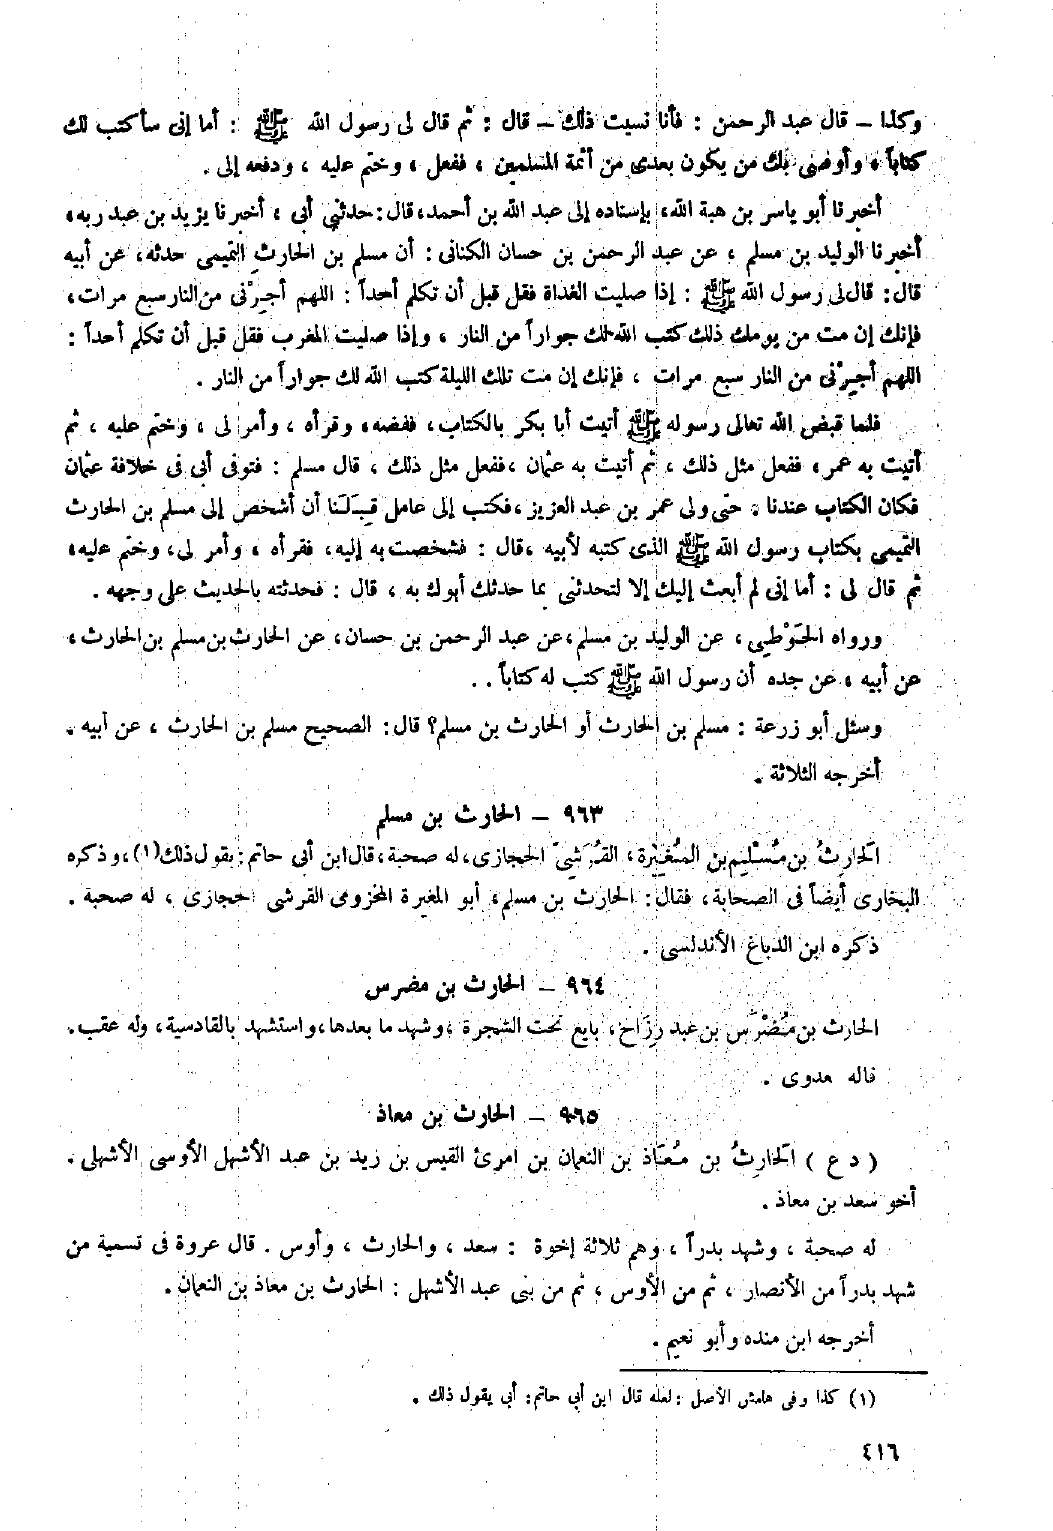 وكذا – قال عبد الرحمن : فأنا نسيت ذلك – قال : ثم قال لى رسول الله ﷺ : أما إنى سأكتب لك
كتاباً ، وأوصى بك من يكون بعدى من أئمة المسلمين ، ففعل ، وختم عليه ، ودفعه إلى .
أخبرنا أبو ياسر بن هبة الله، بإسناده إلى عبد الله بن أحمد، قال: حدثني أبى ، أخبرنا يزيد بن عبد ربه،
أخبرنا الوليد بن مسلم ، عن عبد الرحمن بن حسان الكنانى : أن مسلم بن الحارثِ التميمى حدثه، عن أبيه
قال: قال لى رسول الله ﷺ : إذا صليت الغداة فقل قبل أن تكلم أحداً : اللهم أجِرْنى من النار سبع مرات،
فإنك إن مت من يومك ذلك كتب الله لك جواراً من النار ، وإذا صليت المغرب فقل قبل أن تكلم أحداً :
اللهم أجِرْنى من النار سبع مرات ، فإنك إن مت تلك الليلة كتب الله لك جواراً من النار .
فلما قبض الله تعالى رسوله ﷺ أتيت أبا بكر بالكتاب، ففضه، وقرأه ، وأمر لى ، وختم عليه ، ثم
أتيت به عمر، ففعل مثل ذلك ، ثم أتيت به عثمان ،ففعل مثل ذلك ، قال مسلم : فتوفى أبى فى خلافة عثمان
فكان الكتاب عندنا ، حتى ولى عمر بن عبد العزيز ،فكتب إلى عامل قِبَلَنا أن أشخص إلى مسلم بن الحارث
التميمى بكتاب رسول الله ﷺ الذى كتبه لأبيه ،قال : فشخصت به إليه، فقرأه ، وأمر لى، وختم عليه،
ثم قال لى : أما إنى لم أبعث إليك إلا لتحدثنى بما حدثك أبوك به ، قال : فحدثته بالحديث على وجهه .
ورواه الحَوْطِى ، عن الوليد بن مسلم،عن عبد الرحمن بن حسان، عن الحارث بن مسلم بن الحارث ،
عن أبيه ، عن جده أن رسول الله ﷺ كتب له كتاباً . .
وسئل أبو زرعة : مسلم بن الحارث أو الحارث بن مسلم؟ قال: الصحيح مسلم بن الحارث ، عن أبيه .
أخرجه الثلاثة .
٩٦٣ – الحارث بن مسلم
الحَارِثُ بن مُسْلِم بن المُغيْرة، القُرَشِىّ الحجازى،له صحبة،قال ابن أبى حاتم: بقول ذلك(١)،وذكره
البخارى أيضاً فى الصحابة، فقال: الحارث بن مسلم، أبو المغيرة المخزومى القرشى الحجازى ، له صحبة .
ذكره ابن الدباغ الأندلسى .
٩٦٤ – الحارث بن مضرس
الحارث بن مُضَرِّس بن عبد رِزَاح، بايع تحت الشجرة ،وشهد ما بعدها،واستشهد بالقادسية، وله عقب.
قاله عدوى .
٩٦٥ – الحارث بن معاذ
( د ع ) الحَارِثُ بن مُعَاذ بن النعمان بن امرئ القيس بن زيد بن عبد الأشهل الأوسى الأشهلى .
أخو سعد بن معاذ .
له صحبة ، وشهد بدراً ، وهم ثلاثة إخوة : سعد ، والحارث ، وأوس . قال عروة فى تسمية من
شهد بدراً من الأنصار ، ثم من الأوس ، ثم من بنى عبد الأشهل : الحارث بن معاذ بن النعمان .
أخرجه ابن منده وأبو نعيم .
(١) كذا وفى هامش الأصل : لعله قال ابن أبى حاتم: أبى يقول ذلك .
٤١٦